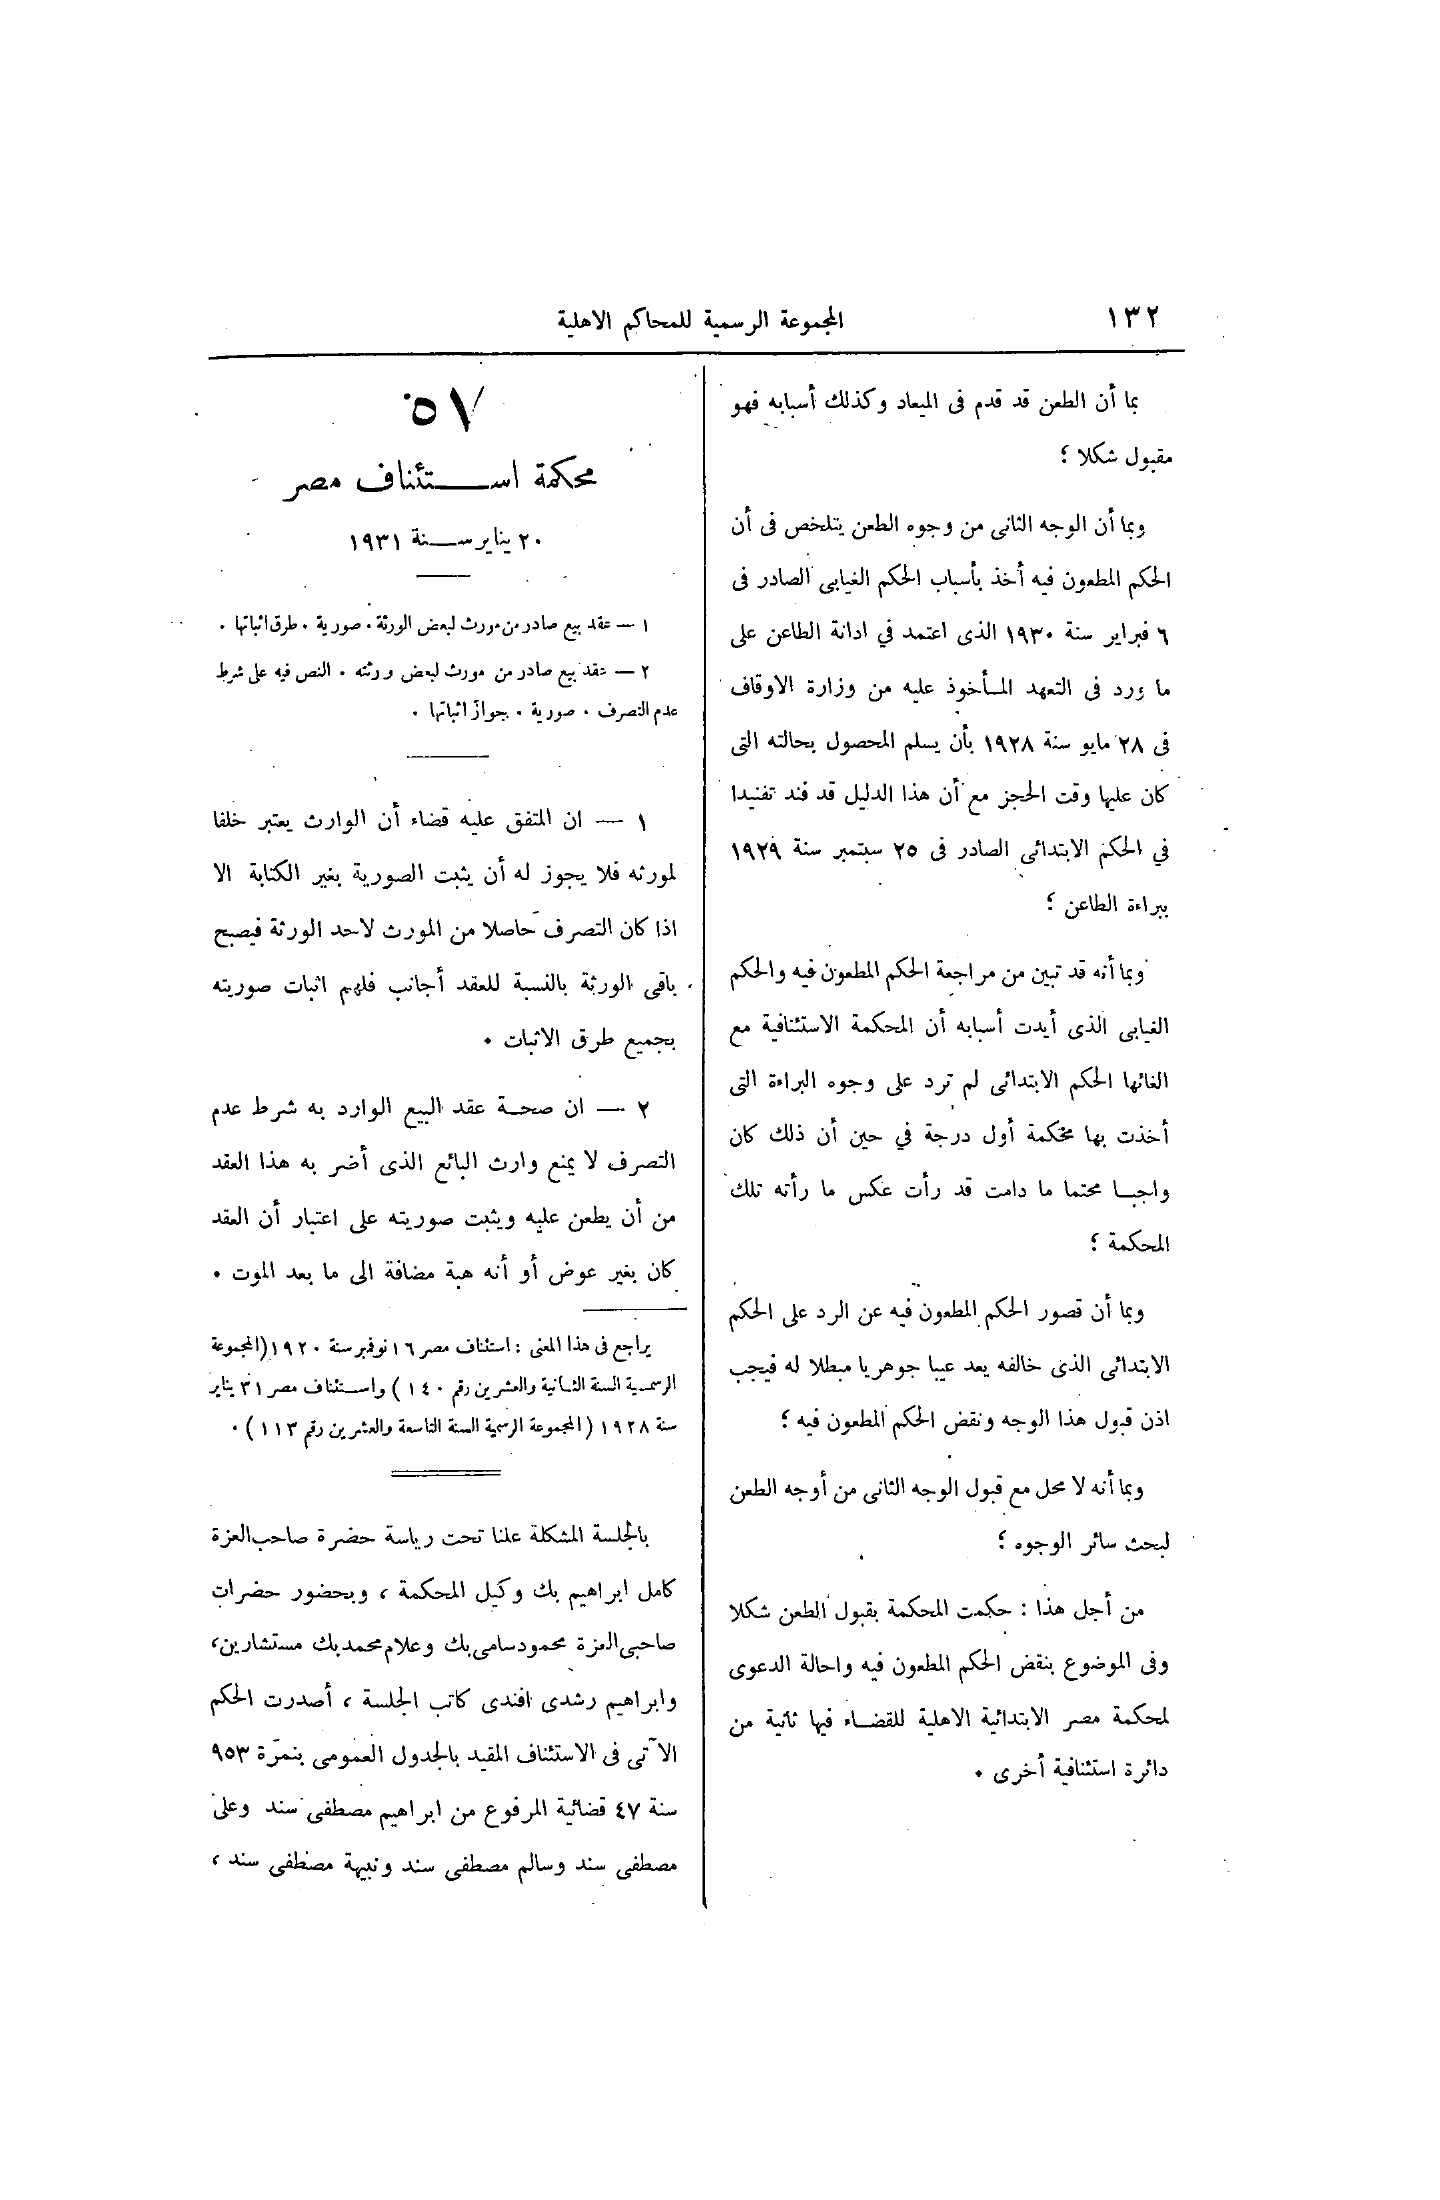 ١٣٢
المجموعة الرسمية للمحاكم الاهلية
بما أن الطعن قد قدم فى الميعاد وكذلك أسبابه فهو
مقبول شكلا ؛
وبما أن الوجه الثانى من وجوه الطعن يتلخص فى أن
الحكم المطعون فيه أخذ بأسباب الحكم الغيابى الصادر فى
٦ فبراير سنة ١٩٣٠ الذى اعتمد في ادانة الطاعن على
ما ورد فى التعهد المأخوذ عليه من وزارة الاوقاف
فى ٢٨ مايو سنة ١٩٢٨ بأن يسلم المحصول بحالته التى
كان عليها وقت الحجز مع أن هذا الدليل قد فند تفنيدا
في الحكم الابتدائى الصادر فى ٢٥ سبتمبر سنة ١٩٢٩
ببراءة الطاعن ؛
وبما أنه قد تبين من مراجعة الحكم المطعون فيه والحكم
الغيابى الذى أيدت أسبابه أن المحكمة الاستئنافية مع
الغائها الحكم الابتدائى لم ترد على وجوه البراءة التى
أخذت بها محكمة أول درجة في حين أن ذلك كان
واجبا محتما ما دامت قد رأت عكس ما رأته تلك
المحكمة ؛
وبما أن قصور الحكم المطعون فيه عن الرد على الحكم
الابتدائى الذى خالفه يعد عيبا جوهريا مبطلا له فيجب
اذن قبول هذا الوجه ونقض الحكم المطعون فيه ؛
وبما أنه لا محل مع قبول الوجه الثانى من أوجه الطعن
لبحث سائر الوجوه ؛
من أجل هذا : حكمت المحكمة بقبول الطعن شكلا
وفى الموضوع بنقض الحكم المطعون فيه واحالة الدعوى
لمحكمة مصر الابتدائية الاهلية للقضاء فيها ثانية من
دائرة استئنافية أخرى ٠
٥٧
محكمة استئناف مصر
٢٠ يناير سنة ١٩٣١
١ — عقد بيع صادر من مورث لبعض الورثة ٠ صورية ٠ طرق اثباتها ٠
٢ — عقد بيع صادر من مورث لبعض ورثته ٠ النص فيه على شرط
عدم التصرف ٠ صورية ٠ جواز اثباتها ٠
١ — ان المتفق عليه قضاء أن الوارث يعتبر خلفا
لمورثه فلا يجوز له أن يثبت الصورية بغير الكتابة الا
اذا كان التصرف حاصلا من المورث لاحد الورثة فيصبح
باقى الورثة بالنسبة للعقد أجانب فلهم اثبات صوريته
بجميع طرق الاثبات ٠
٢ — ان صحة عقد البيع الوارد به شرط عدم
التصرف لا يمنع وارث البائع الذى أضر به هذا العقد
من أن يطعن عليه ويثبت صوريته على اعتبار أن العقد
كان بغير عوض أو أنه هبة مضافة الى ما بعد الموت ٠
يراجع فى هذا المعنى : استئناف مصر ١٦ نوفمبر سنة ١٩٢٠ (المجموعة
الرسمية السنة الثانية والعشرين رقم ١٤٠) واستئناف مصر ٣١ يناير
سنة ١٩٢٨ (المجموعة الرسمية السنة التاسعة والعشرين رقم ١١٣) ٠
بالجلسة المشكلة علنا تحت رياسة حضرة صاحب العزة
كامل ابراهيم بك وكيل المحكمة ، وبحضور حضرات
صاحبى العزة محمود سامى بك وعلام محمد بك مستشارين،
وابراهيم رشدى افندى كاتب الجلسة ، أصدرت الحكم
الآتى فى الاستئناف المقيد بالجدول العمومى بنمرة ٩٥٣
سنة ٤٧ قضائية المرفوع من ابراهيم مصطفى سند وعلى
مصطفى سند وسالم مصطفى سند ونبيهة مصطفى سند ،